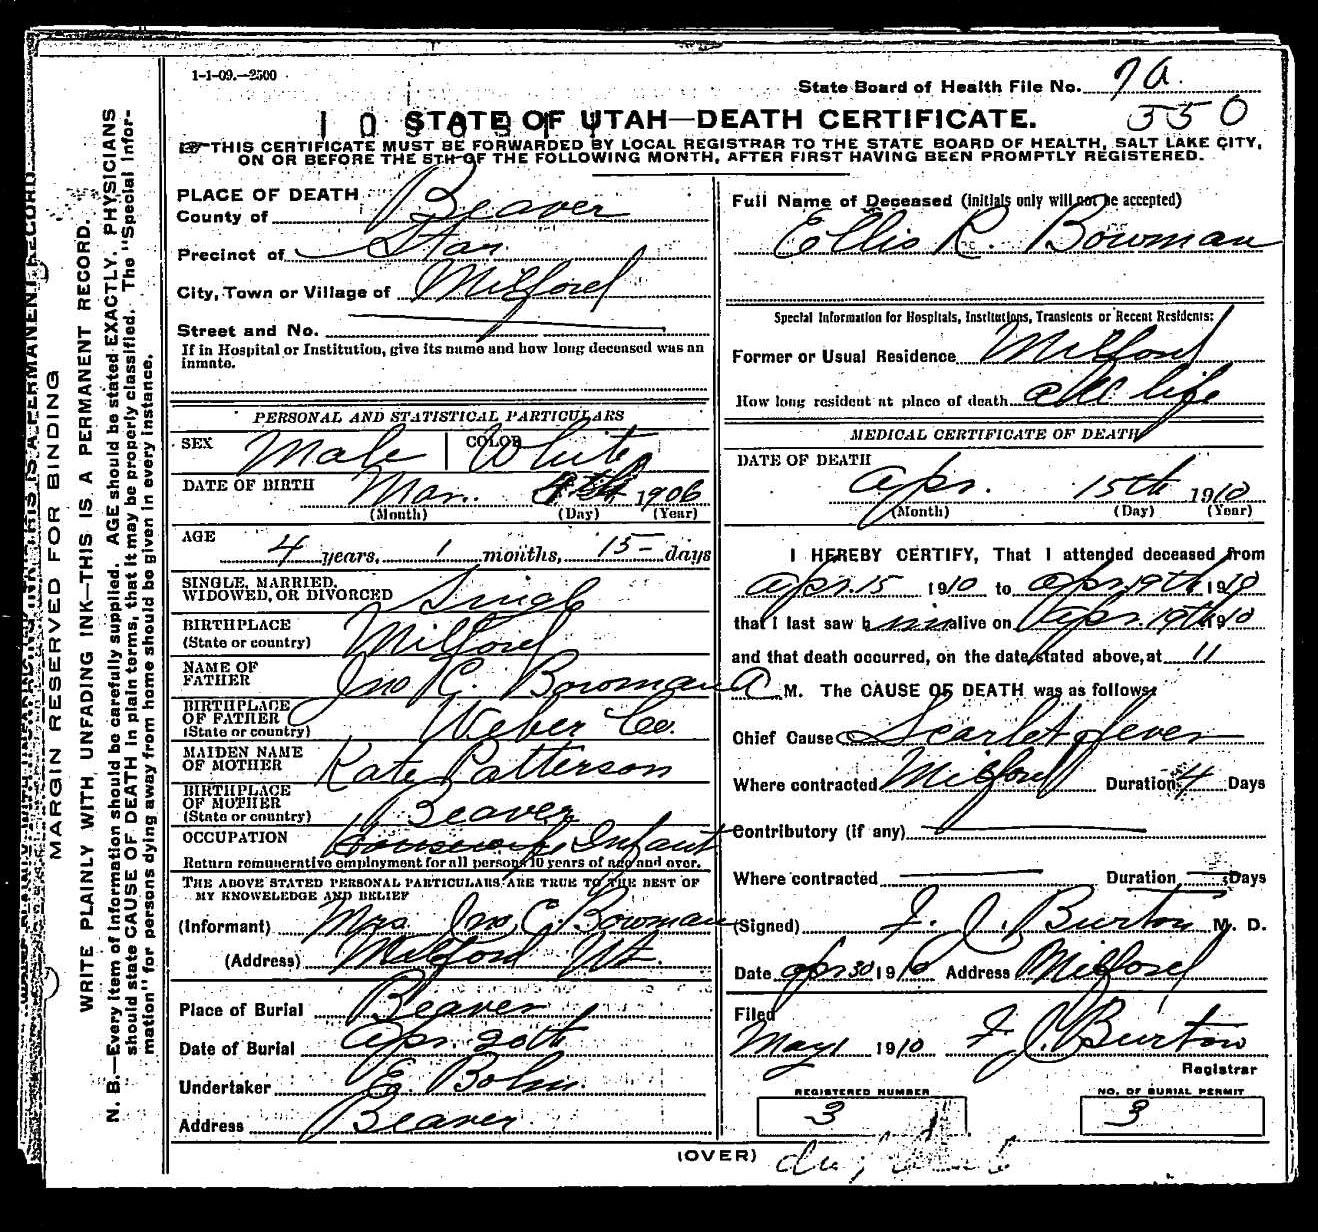 1-1-09.—2500
State Board of Health File No. 7a.
350
STATE OF UTAH—DEATH CERTIFICATE.
THIS CERTIFICATE MUST BE FORWARDED BY LOCAL REGISTRAR TO THE STATE BOARD OF HEALTH, SALT LAKE CITY,
ON OR BEFORE THE 5TH OF THE FOLLOWING MONTH, AFTER FIRST HAVING BEEN PROMPTLY REGISTERED.
MARGIN RESERVED FOR BINDING
WRITE PLAINLY WITH UNFADING INK—THIS IS A PERMANENT RECORD.
N. B.—Every item of information should be carefully supplied. AGE should be stated EXACTLY. PHYSICIANS
should state CAUSE OF DEATH in plain terms, that it may be properly classified. The "Special Infor-
mation" for persons dying away from home should be given in every instance.
PLACE OF DEATH
County of Beaver
Precinct of Star
City, Town or Village of Milford
Street and No.
If in Hospital or Institution, give its name and how long deceased was an
inmate.
PERSONAL AND STATISTICAL PARTICULARS
SEX Male COLOR White
DATE OF BIRTH Mar. 1906
(Month) (Day) (Year)
AGE
4 years, 1 months, 15 days
SINGLE, MARRIED,
WIDOWED, OR DIVORCED Single
BIRTHPLACE
(State or country) Milford
NAME OF
FATHER Jno C. Bowman
BIRTHPLACE
OF FATHER
(State or country) Weber Co.
MAIDEN NAME
OF MOTHER Kate Patterson
BIRTHPLACE
OF MOTHER
(State or country) Beaver
OCCUPATION Housewife Infant
Return remunerative employment for all persons 10 years of age and over.
THE ABOVE STATED PERSONAL PARTICULARS ARE TRUE TO THE BEST OF
MY KNOWELEDGE AND BELIEF
(Informant) Mrs. Jno C. Bowman
(Address) Milford Ut.
Place of Burial Beaver
Date of Burial Apr. 20th
Undertaker E. Bohn.
Address Beaver
Full Name of Deceased (initials only will not be accepted)
Ellis R. Bowman
Special Information for Hospitals, Institutions, Transients or Recent Residents:
Former or Usual Residence Milford
How long resident at place of death all life
MEDICAL CERTIFICATE OF DEATH
DATE OF DEATH
Apr. 15th 1910
(Month) (Day) (Year)
I HEREBY CERTIFY, That I attended deceased from
Apr. 15 1910 to Apr. 19th 1910
that I last saw him alive on Apr. 19th 1910
and that death occurred, on the date stated above, at 11
A M. The CAUSE OF DEATH was as follows:
Chief Cause Scarlet fever
Where contracted Milford Duration 4 Days
Contributory (if any)
Where contracted Duration Days
(Signed) F. J. Burton M. D.
Date Apr 30 1910 Address Milford
Filed
May 1 1910 F. J. Burton
Registrar
REGISTERED NUMBER
3
NO. OF BURIAL PERMIT
3
(OVER)